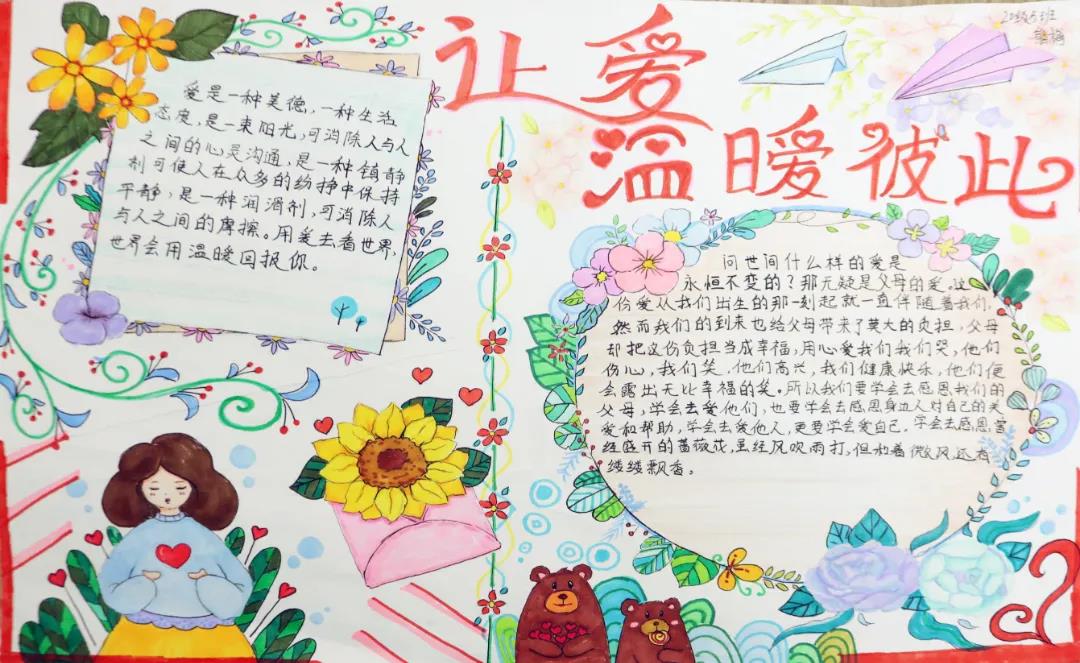 让爱
温暖彼此
20级5班
爱是一种美德,一种生活
态度,是一束阳光,可消除人与人
之间的心灵沟通,是一种镇静
剂可使人在众多的纷挣中保持
平静,是一种润滑剂,可消除人
与人之间的摩擦。用爱去看世界,
世界会用温暖回报你。
问世间什么样的爱是
永恒不变的?那无疑是父母的爱。这
份爱从我们出生的那一刻起就一直伴随着我们,
然而我们的到来也给父母带来了莫大的负担,父母
却把这份负担当成幸福,用心爱我们我们哭,他们
伤心,我们笑,他们高兴,我们健康快乐,他们便
会露出无比幸福的笑。所以我们要学会去感恩我们的
父母,学会去爱他们,也要学会去感恩身边人对自己的关
爱和帮助,学会去爱他人,更要学会爱自己,学会去感恩
经盛开的蔷薇花,虽经风吹雨打,但和着微风还有
缕缕飘香。